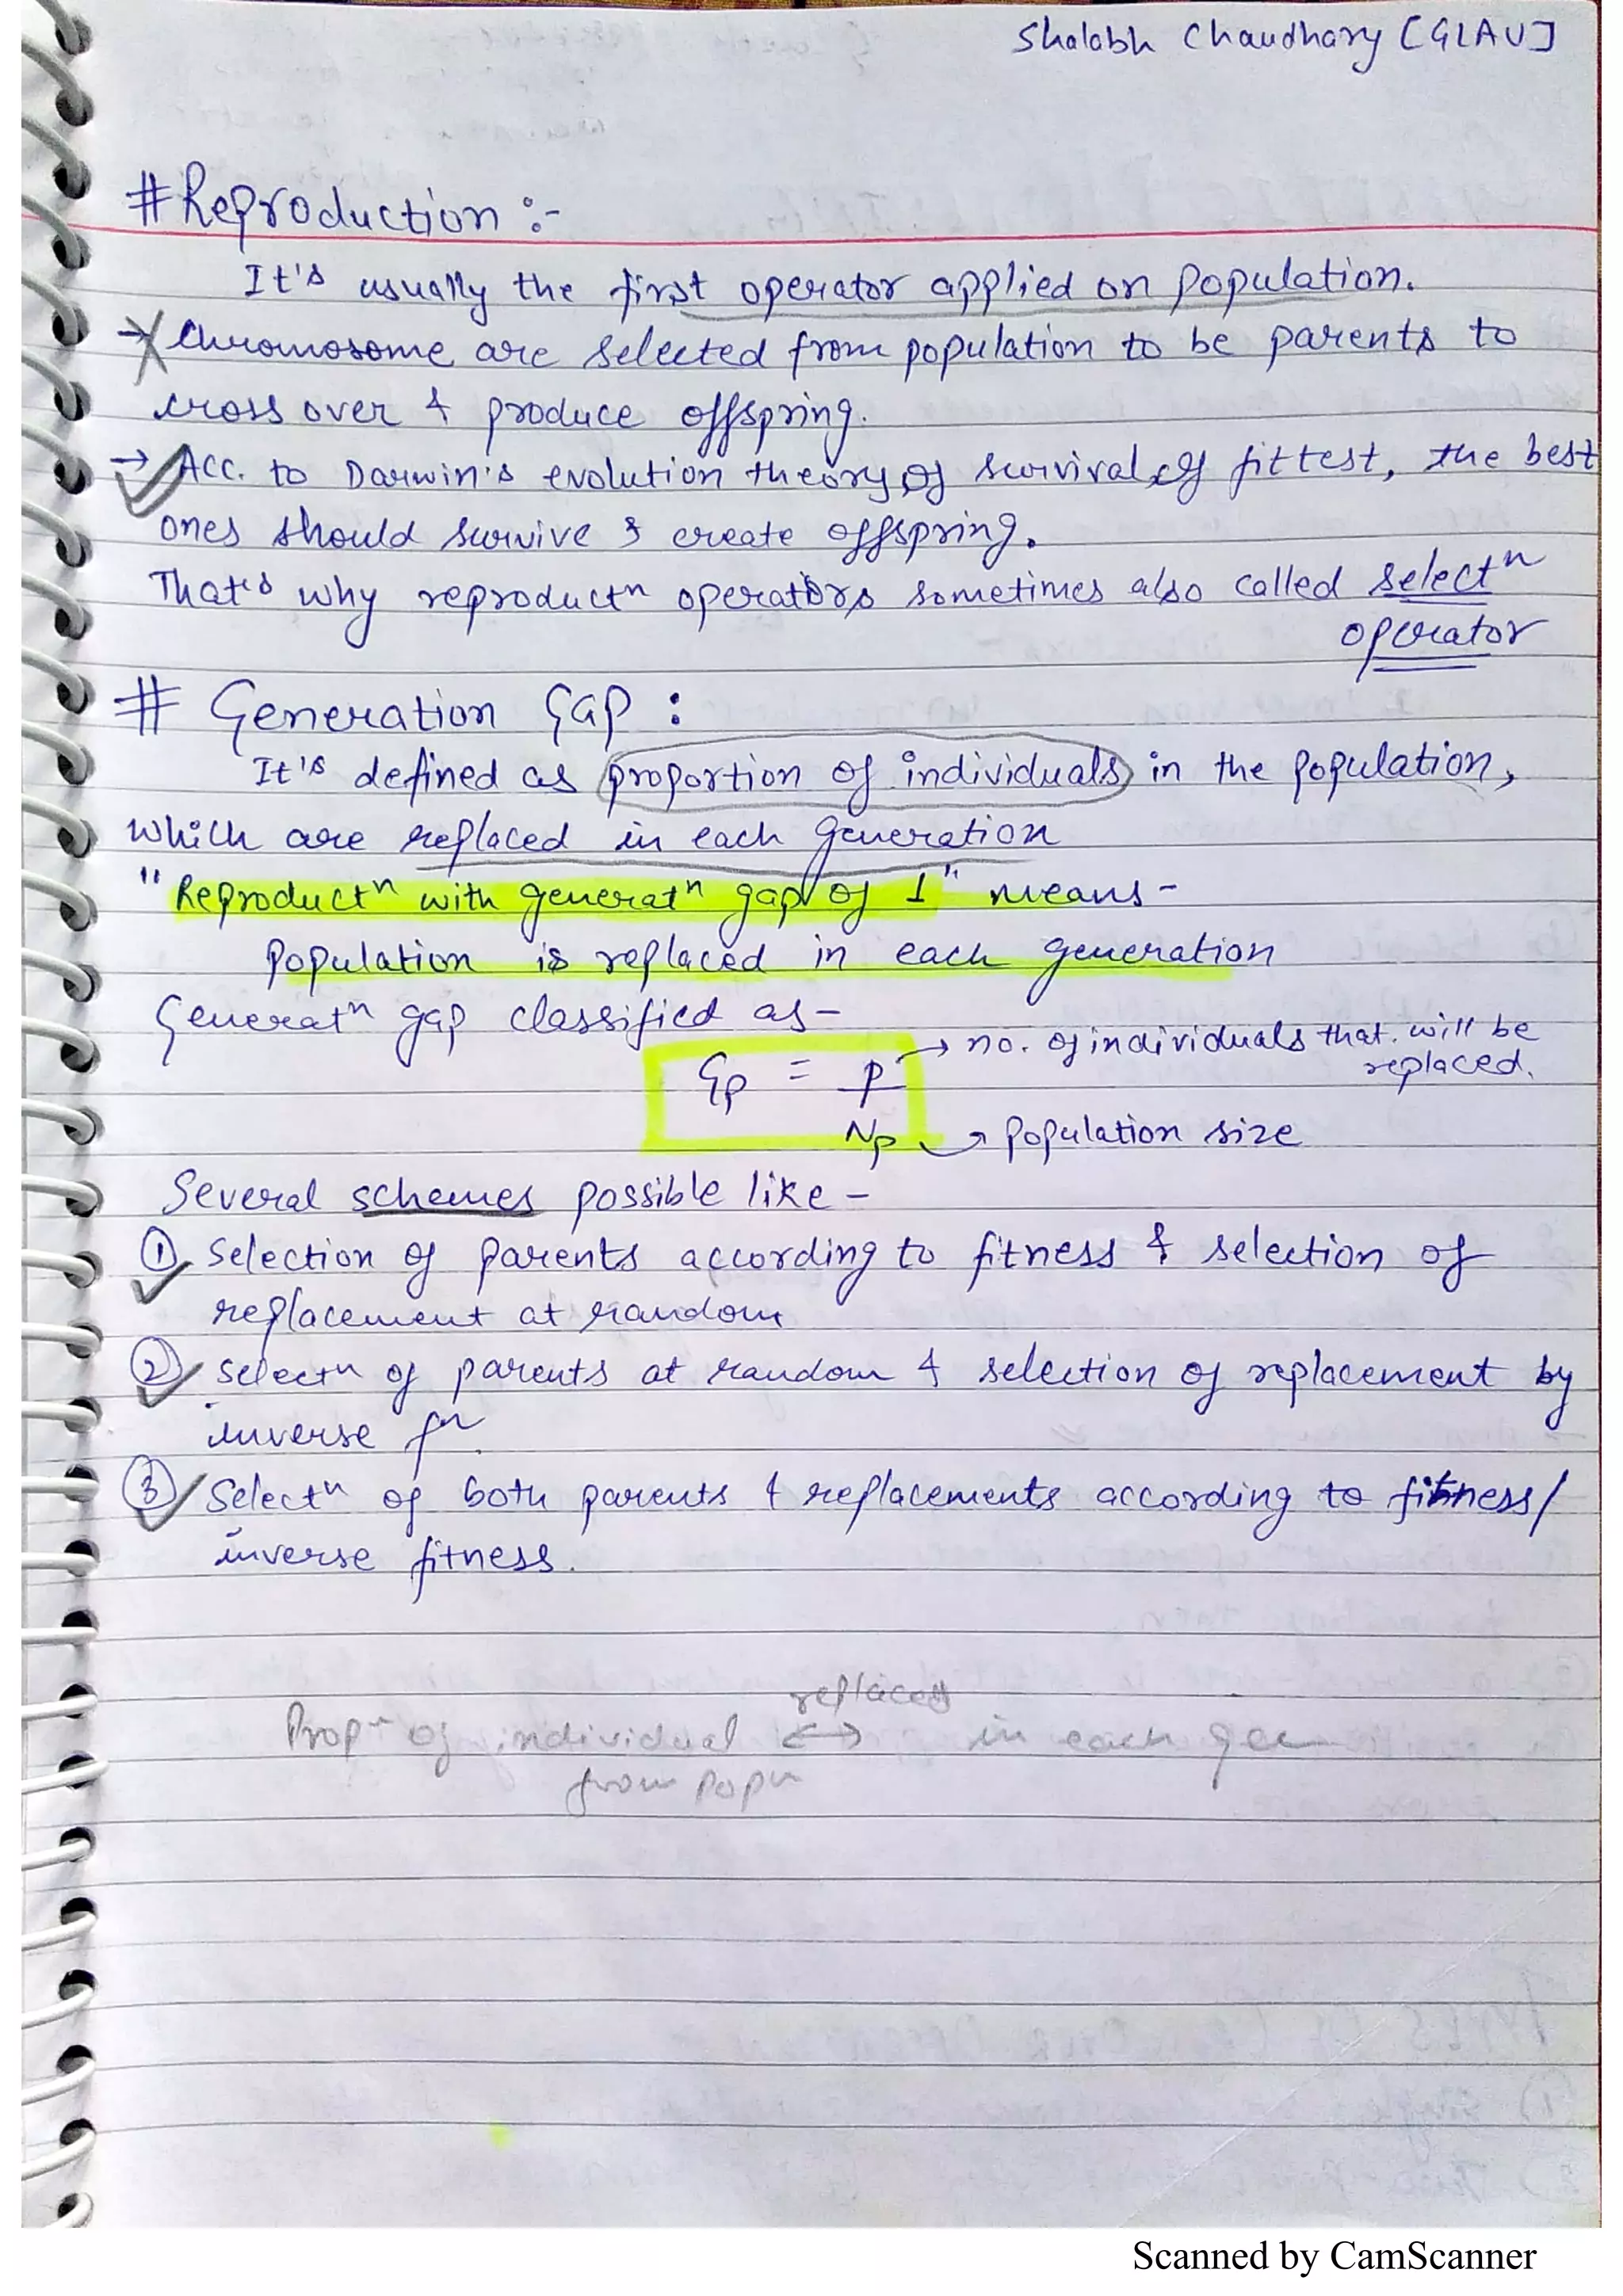 Shalabh Chaudhary [GLAU]
# Reproduction :-
It's usually the first operator applied on population.
→ Chromosome are selected from population to be parents to
cross over & produce offspring.
→ Acc. to Darwin's evolution theory of survival of fittest, the best
ones should survive & create offspring.
That's why reproductn operators sometimes also called selectn
operator
# Generation Gap :
It's defined as proportion of individuals in the population,
which are replaced in each generation
"Reproductn with generatn gap of 1" means -
population is replaced in each generation
Generatn gap classified as -
Gp = p → no. of individuals that will be
replaced.
Np → population size
Several schemes possible like -
① Selection of parents according to fitness & selection of
replacement at random
② Selectn of parents at random & selection of replacement by
inverse fn
③ Selectn of both parents & replacements according to fitness/
inverse fitness.
replaced
Propn of individual ↔ in each gen
from popn
Scanned by CamScanner